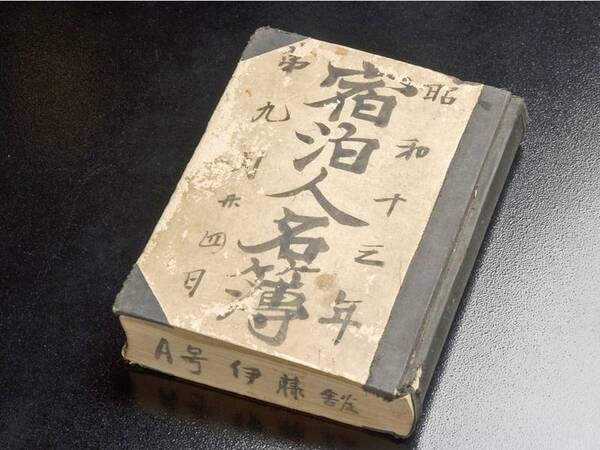 昭和十三年
宿泊人名簿
第九月廿四日
A号 伊藤舘